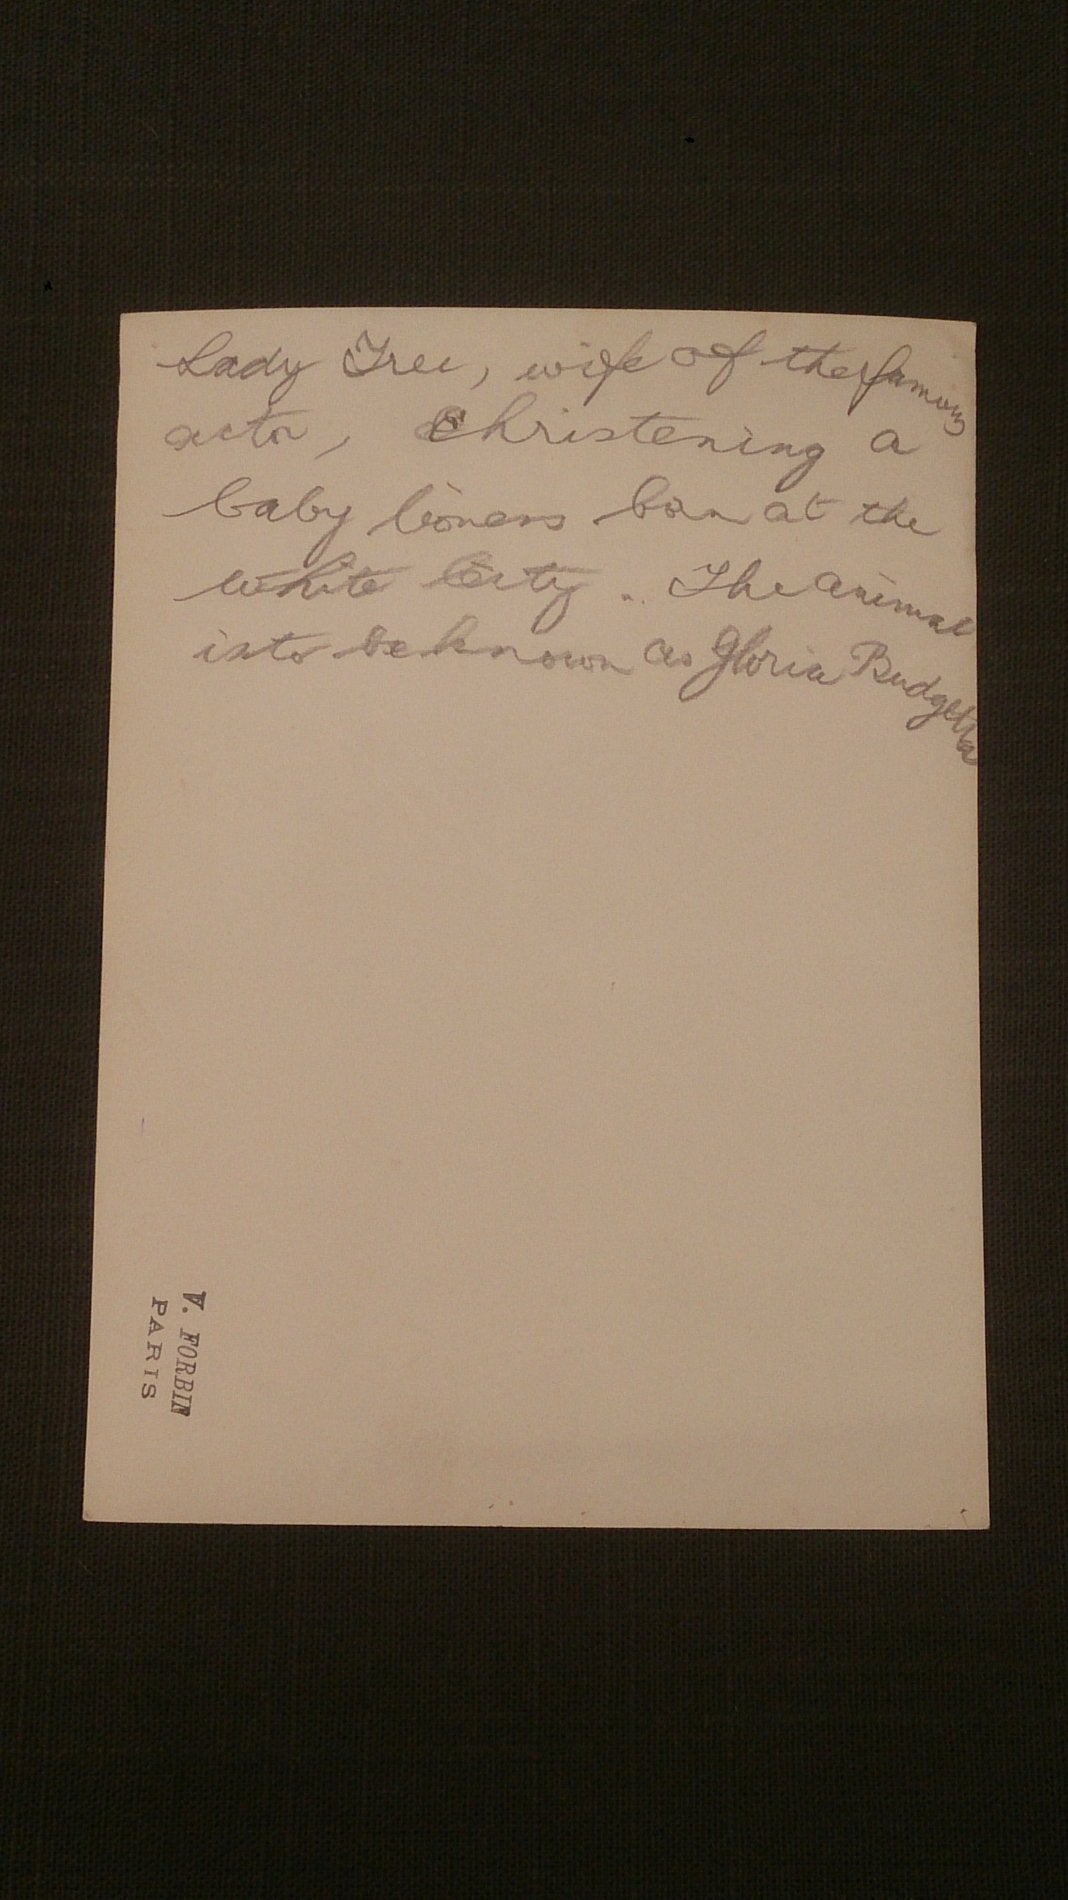 Lady Tree, wife of the famous
actor, Christening a
baby lioness born at the
white City. The animal
is to be known as Gloria Budgetta
V. FORBIN
PARIS